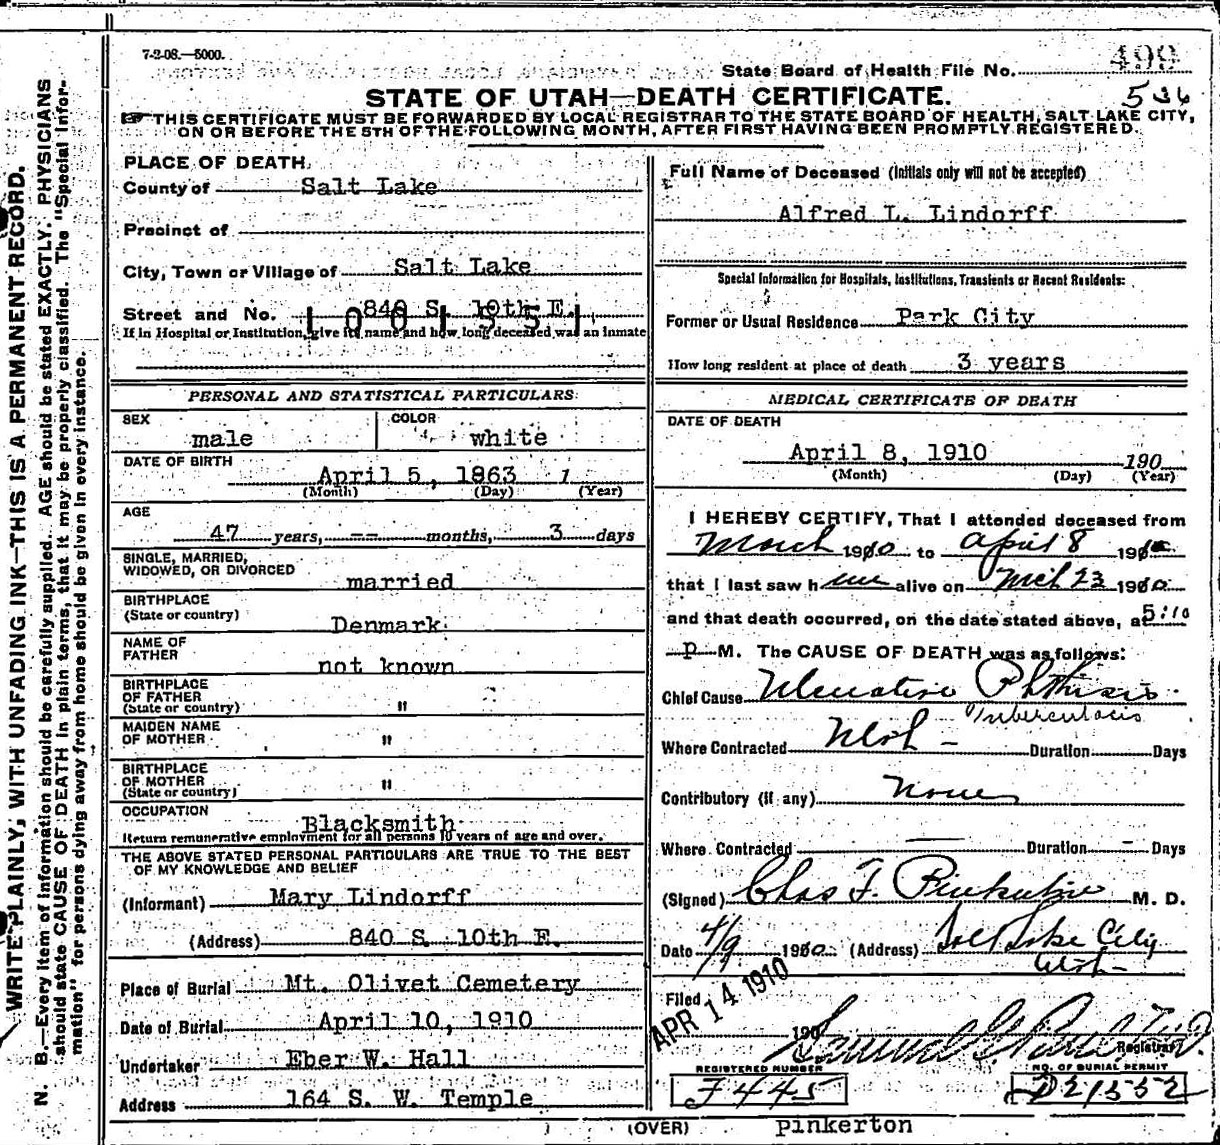 7-2-08.—5000.
State Board of Health File No. 499
536
STATE OF UTAH—DEATH CERTIFICATE.
THIS CERTIFICATE MUST BE FORWARDED BY LOCAL REGISTRAR TO THE STATE BOARD OF HEALTH, SALT LAKE CITY,
ON OR BEFORE THE 5TH OF THE FOLLOWING MONTH, AFTER FIRST HAVING BEEN PROMPTLY REGISTERED.
WRITE PLAINLY, WITH UNFADING INK—THIS IS A PERMANENT RECORD.
N. B.—Every item of information should be carefully supplied. AGE should be stated EXACTLY. PHYSICIANS
should state CAUSE OF DEATH in plain terms, that it may be properly classified. The "Special Infor-
mation" for persons dying away from home should be given in every instance.
PLACE OF DEATH
County of Salt Lake
Precinct of
City, Town or Village of Salt Lake
Street and No. 840 S. 10th E.
1001551
If in Hospital or Institution, give its name and how long deceased was an inmate
PERSONAL AND STATISTICAL PARTICULARS
SEX male
COLOR white
DATE OF BIRTH
April 5, 1863 1
(Month) (Day) (Year)
AGE
47 years, -- months, 3 days
SINGLE, MARRIED,
WIDOWED, OR DIVORCED
married
BIRTHPLACE
(State or country)
Denmark
NAME OF
FATHER
not known
BIRTHPLACE
OF FATHER
(State or country) "
MAIDEN NAME
OF MOTHER "
BIRTHPLACE
OF MOTHER
(State or country) "
OCCUPATION
Blacksmith
Return remunerative employment for all persons 10 years of age and over.
THE ABOVE STATED PERSONAL PARTICULARS ARE TRUE TO THE BEST
OF MY KNOWLEDGE AND BELIEF
(Informant) Mary Lindorff
(Address) 840 S. 10th E.
Place of Burial Mt. Olivet Cemetery
Date of Burial April 10, 1910
Undertaker Eber W. Hall
Address 164 S. W. Temple
Full Name of Deceased (Initials only will not be accepted)
Alfred L. Lindorff
Special Information for Hospitals, Institutions, Transients or Recent Residents:
Former or Usual Residence Park City
How long resident at place of death 3 years
MEDICAL CERTIFICATE OF DEATH
DATE OF DEATH
April 8, 1910 190
(Month) (Day) (Year)
I HEREBY CERTIFY, That I attended deceased from
March 1910 to April 8 1910
that I last saw him alive on Mch 23 1910
and that death occurred, on the date stated above, at 5:10
P M. The CAUSE OF DEATH was as follows:
Chief Cause Ulcerative Phthisis
Tuberculosis
Where Contracted Utah - Duration Days
Contributory (if any) None
Where Contracted — Duration - Days
(Signed) Chas F. Pinkerton M. D.
Date 4/9 1910 (Address) Salt Lake City
Utah
Filed APR 14 1910
190
Registrar
REGISTERED NUMBER
F445
NO. OF BURIAL PERMIT
D21552
(OVER)
Pinkerton